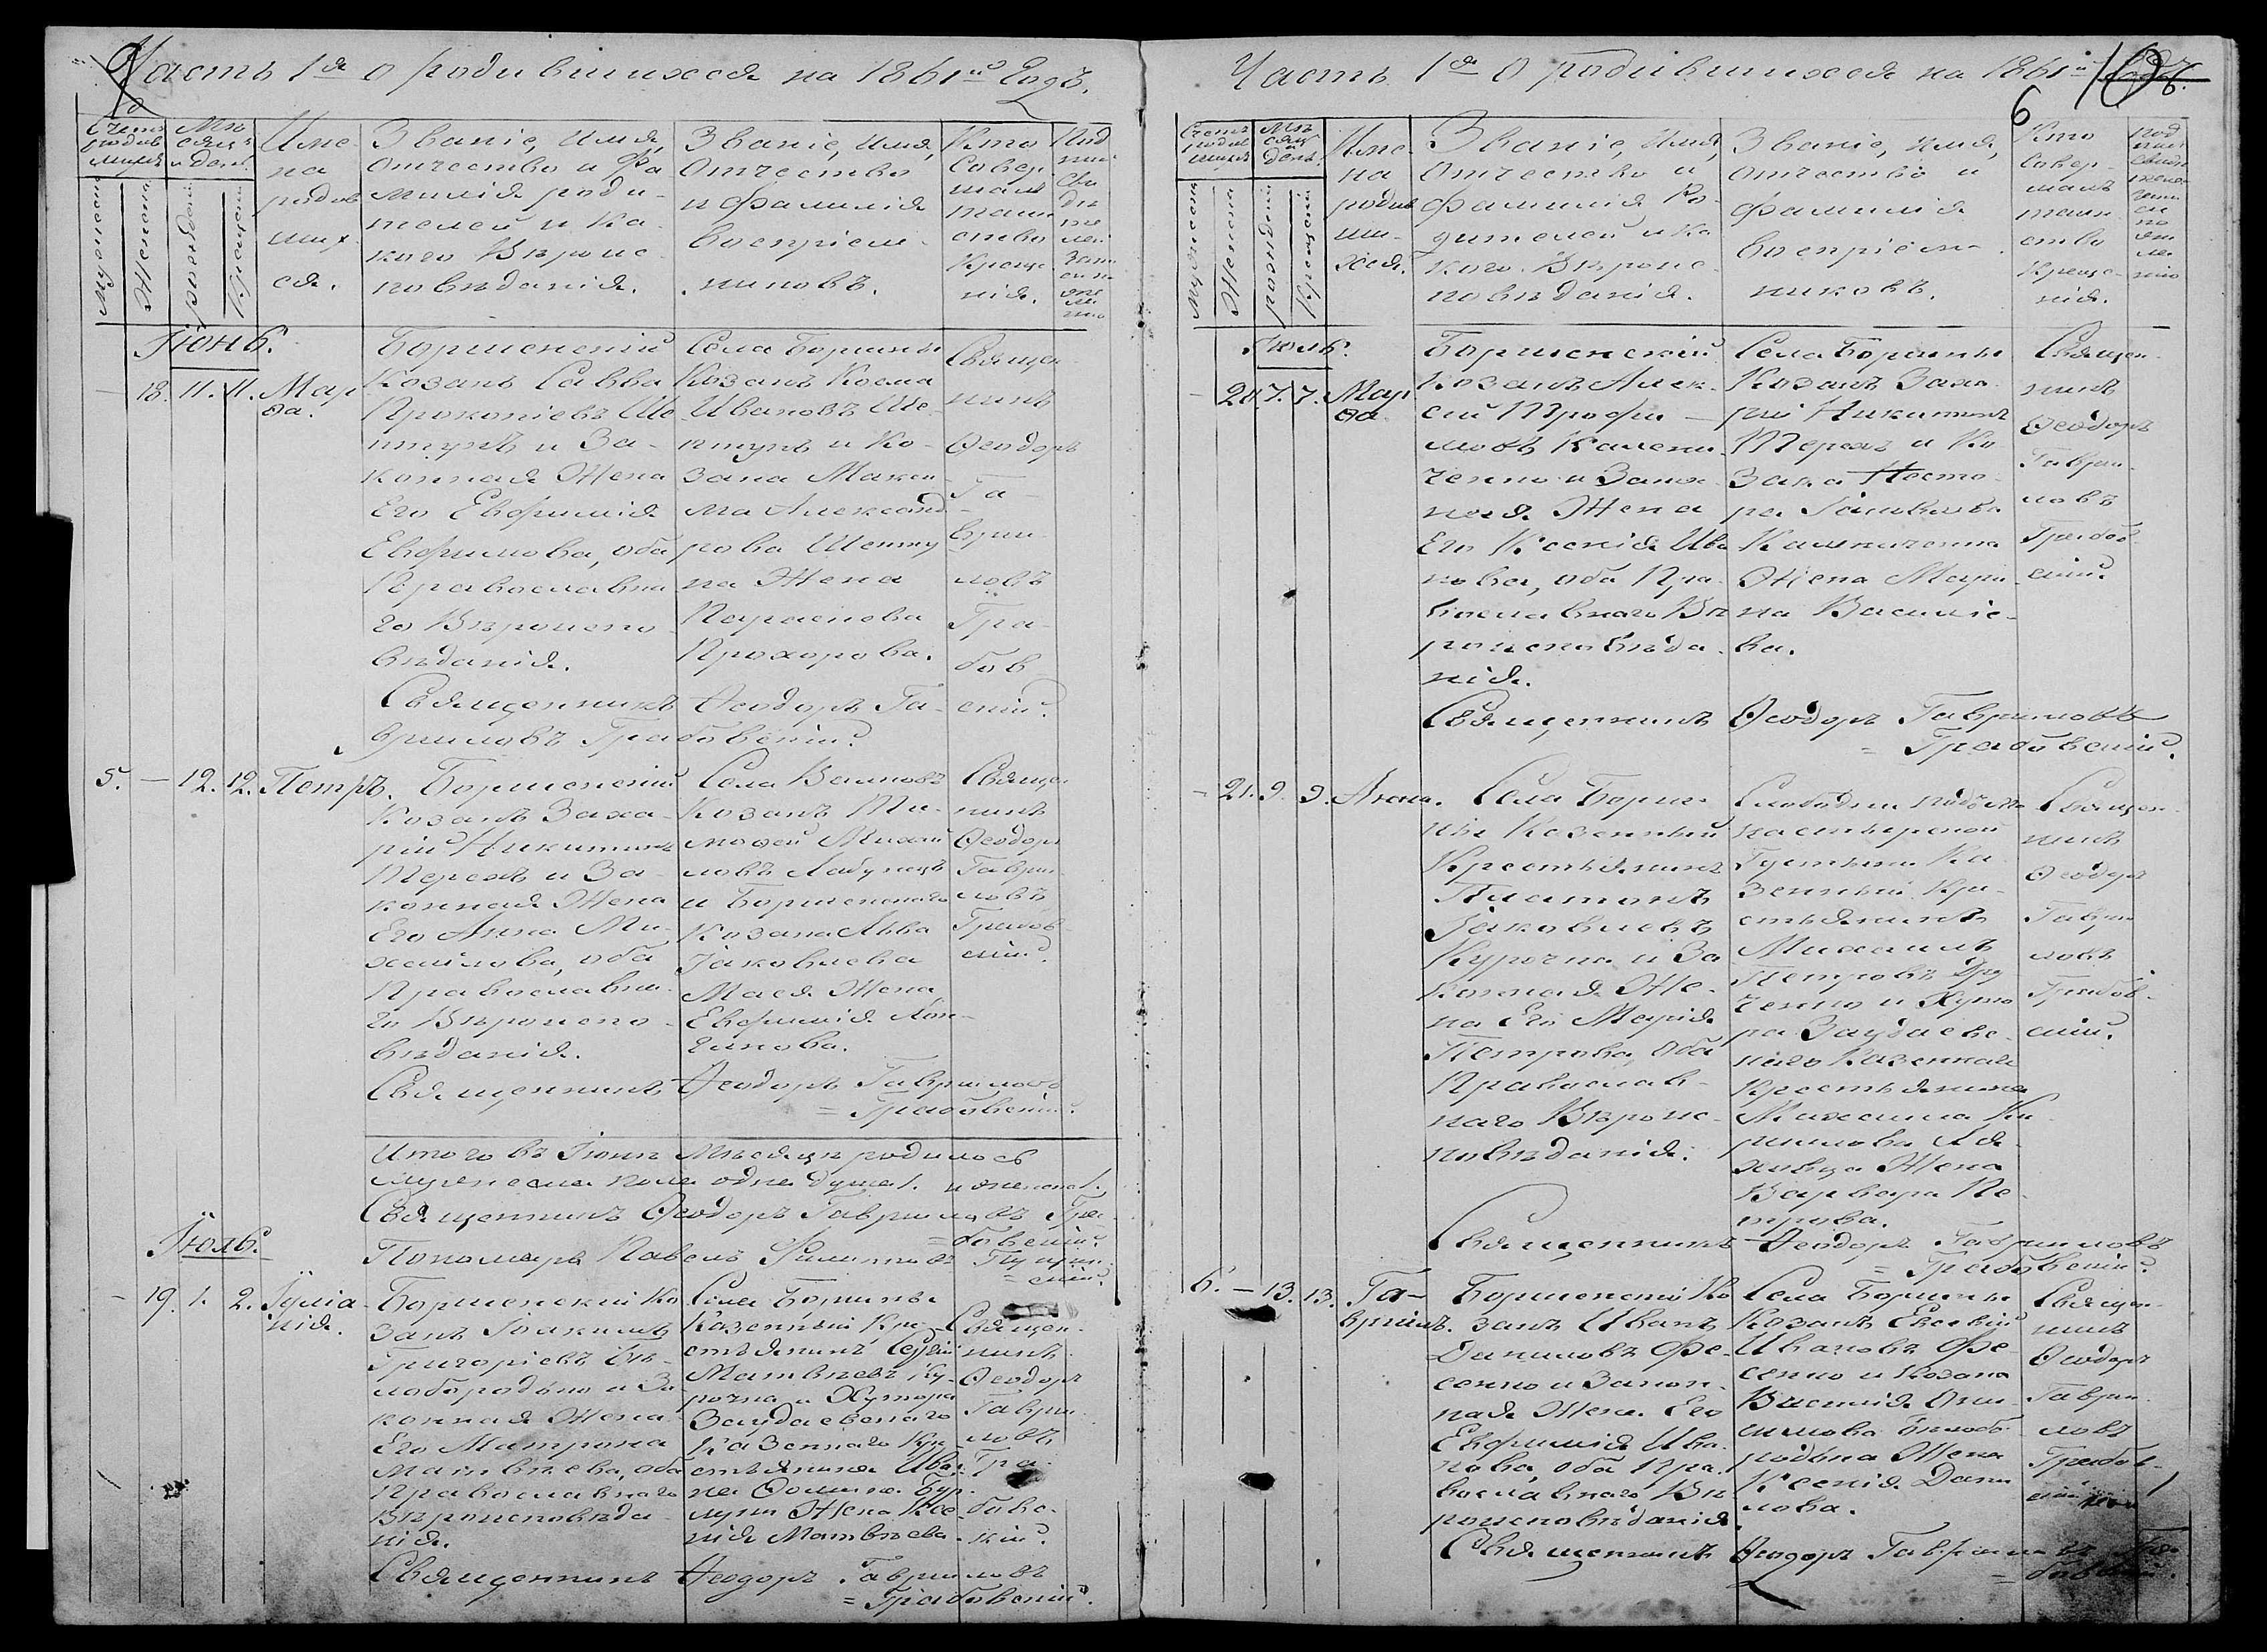 Часть 1я о родившихся на 1861й Годъ.
Счетъ родив шихся
Мѣ сяцъ и день.
Име на родив ших ся.
Званіе, имя, Отчество и фа милія роди телей и ка кого Вѣроис повѣданія.
Званіе, имя, Отчество и фамилія воспріем никовъ.
Кто совер шалъ таин ство креще нія.
Мужескаго
Женска
рожденія
крещенія
Іюнь.
18. 11. 11. Мар ѳа.
Боршенскій
Козакъ Савва
Прокопіевъ Ше
птунъ и За
конная Жена
Его Евфимія
Евфимова, оба
Православна
го Вѣроиспо
вѣданія.
Села Боршны
Козакъ Косма
Ивановъ Ше
птунъ и Ко
зака Макси
ма Александ
рова Шепту
на Жена
Парасковa
Прохорова.
Священ
никъ
Ѳеодоръ
Га
врии
ловъ
Гра
бов
скій.
Священникъ Ѳеодоръ Га
вриловъ Грабовскій.
5. — 12. 12. Петръ.
Боршенскій
Козакъ Заха
рій Никитинъ
Терехъ и За
конная Жена
Его Анна Ми
хаилова, оба
Православна
го Вѣроиспо
вѣданія.
Козакъ Ти
моѳей Михаи
ловъ
и Боршенскаго
Козака Льва
Іаковлева
Жена
Евфимія Лон
гинова.
Священ
никъ
Ѳеодоръ
Гаврии
ловъ
Грабов
скій.
Священникъ Ѳеодоръ Гавриловъ
= Грабовскій.
Итого въ Іюнѣ Мѣсяцѣ родилось
мужеска пола одна душа 1. и женска 1.
Священникъ Ѳеодоръ Гавриловъ Гра
= бовскій.
Пономарь Павелъ Филиповъ
Іюль.
19. 1. 2. Іуліа нія.
Боршенскій Ко
закъ Іоакимъ
Григоріевъ Бѣ
лобородько и За
конная Жена
Его Матрона
Матвѣева, оба
Православнаго
Вѣроисповѣда
нія.
Села Боршны
Казенный Кре
стьянинъ Сергій
Матвѣевъ Ку
рочка и Хутора
Заудаевскаго
Казеннаго Кре
стьянина Ива
на Ѳомина Бур
Жена Ксе
нія Матвѣева
Священ
никъ
Ѳеодоръ
Гаври
ловъ
Гра
бовс
кій.
Священникъ Ѳеодоръ Гавриловъ
= Грабовскій.
Часть 1я О родившихся на 1861й
6
Счетъ родив шихся
Мѣ сяцъ день.
Име на родив ши хся.
Званіе, Имя, Отчество и фамилія Ро дителей и ка кого Вѣроис повѣданія.
Званіе, имя, Отчество и фамилія воспріем никовъ.
Кто Совер шалъ таин ство креще нія.
Мужеска
Женска
рожденія
Крещенія
Іюль.
20. 7. 7. Мар ѳа
Боршенскій
Козакъ Алек
сій Трофи
мовъ Калени
ченко и Закон
ная Жена
Его Ксенія Ива
нова, оба Пра
вославнаго Вѣ
роисповѣда
нія.
Села Боршны
Козакъ Заха
рій Никитинъ
Терехъ и Ко
зака Несто
ра
Жена Мари
на Василіе
ва.
Священ
никъ
Ѳеодоръ
Гаври
ловъ
Грабов
скій.
Священникъ Ѳеодоръ Гавриловъ
= Грабовскій.
21. 9. 9. Анна.
Села Борш
ны Казенный
Крестьянинъ
Платонъ
Іаковлевъ
Курочка и За
конная Же
на Его Марія
Петрова, Оба
Православ
наго Вѣроис
повѣданія.
Слободки
Густыни Ка
зенный Кре
стьянинъ
Михаилъ
Петровъ
ченко и Хуто
ра Заудаевс
каго Казеннаго
Крестьянина
Максима Ки
рилова
Жена
Варвара Пе
трова.
Священ
никъ
Ѳеодоръ
Гаври
ловъ
Грабов
скій.
Священникъ Ѳеодоръ Гавриловъ
= Грабовскій.
6. — 13. 13. Га вріилъ.
Боршенскій Ко
закъ Иванъ
Даниловъ Фе
сенко и Закон
ная Жена Его
Евфимія Ива
нова, оба Пра
вославнаго Вѣ
роисповѣданія
Села Боршны
Козакъ Евсевій
Ивановъ Фе
сенко и Козака
Василія Они
симова Бѣлобо
родька Жена
Ксенія Дани
лова.
Священ
никъ
Ѳеодоръ
Гаври
ловъ
Грабов
скій
Священникъ Ѳеодоръ Гавриловъ Гра
= бовскій.